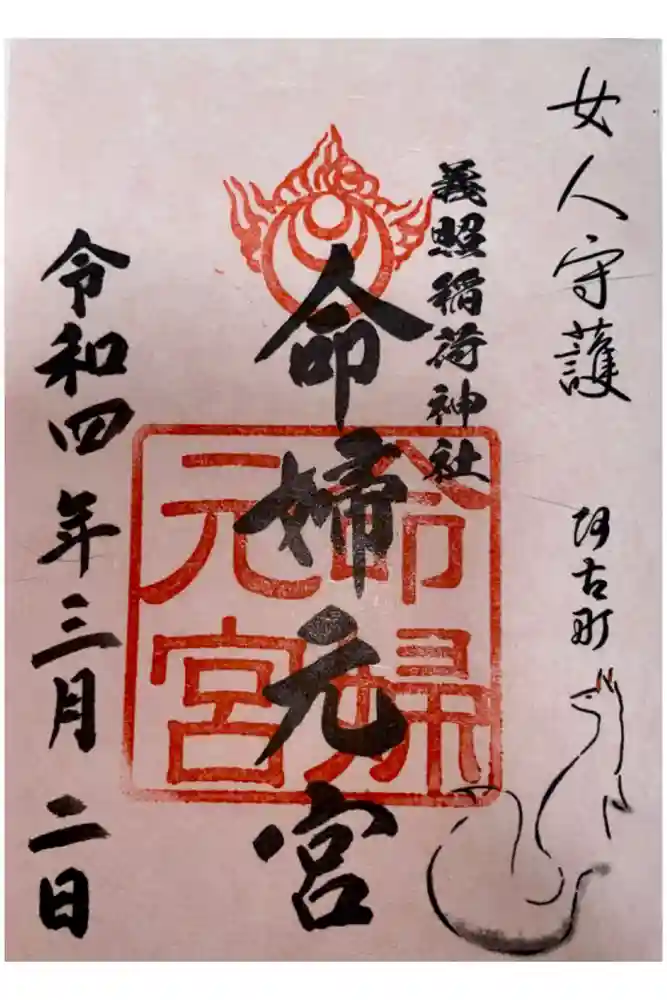 女人守護
阿古町
義照稲荷神社
命婦元宮
命婦元宮
令和四年三月二日